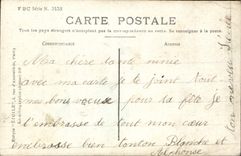 V DC Série N. 3153
CARTE POSTALE
Tous les pays étrangers n'acceptent pas la correspondance au recto. (Se renseigner à la Poste)
CORRESPONDANCE
ADRESSE
Ma chère tante mimie
avec ma carte je te joint tout
mes bons vœux pour sa fête je
l'embrasse de tout mon cœur
embrasse bien tonton Blanche et
Alphonse
ton neveu